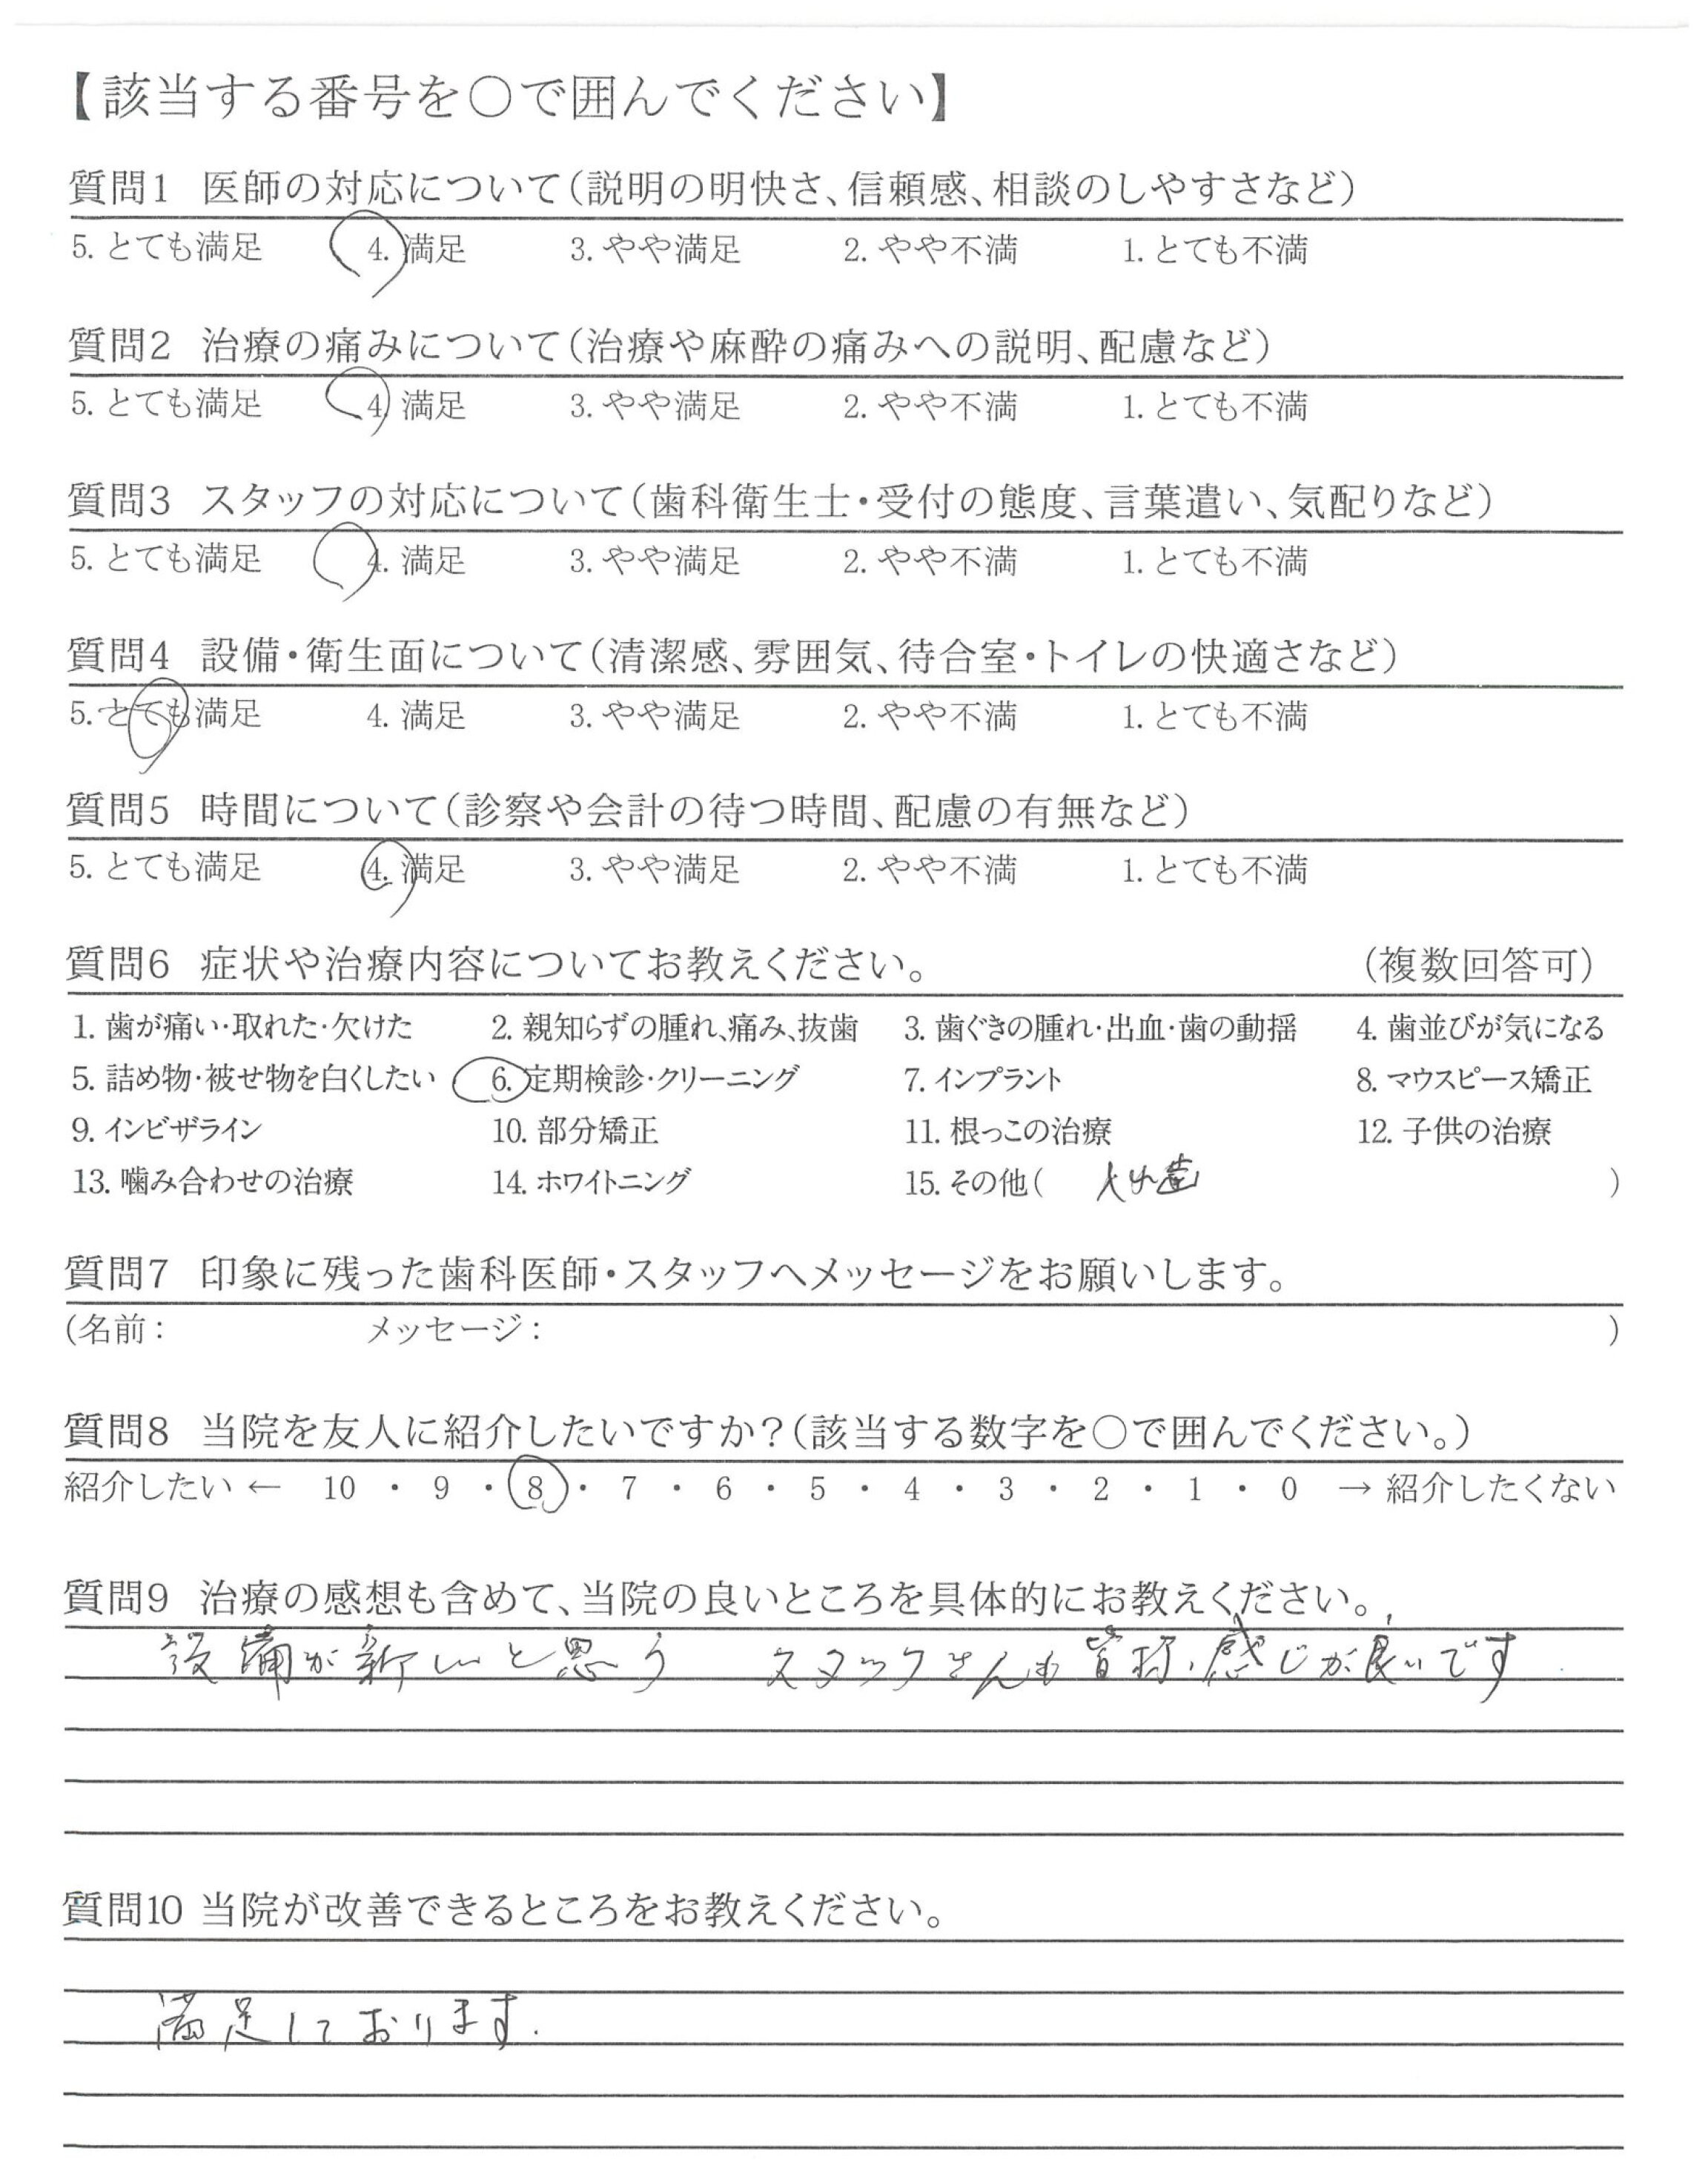 【該当する番号を○で囲んでください】
質問1 医師の対応について(説明の明快さ、信頼感、相談のしやすさなど)
5. とても満足 4. 満足 3. やや満足 2. やや不満 1. とても不満
質問2 治療の痛みについて(治療や麻酔の痛みへの説明、配慮など)
5. とても満足 4. 満足 3. やや満足 2. やや不満 1. とても不満
質問3 スタッフの対応について(歯科衛生士・受付の態度、言葉遣い、気配りなど)
5. とても満足 4. 満足 3. やや満足 2. やや不満 1. とても不満
質問4 設備・衛生面について(清潔感、雰囲気、待合室・トイレの快適さなど)
5. とても満足 4. 満足 3. やや満足 2. やや不満 1. とても不満
質問5 時間について(診察や会計の待つ時間、配慮の有無など)
5. とても満足 4. 満足 3. やや満足 2. やや不満 1. とても不満
質問6 症状や治療内容についてお教えください。 (複数回答可)
1. 歯が痛い・取れた・欠けた 2. 親知らずの腫れ、痛み、抜歯 3. 歯ぐきの腫れ・出血・歯の動揺 4. 歯並びが気になる
5. 詰め物・被せ物を白くしたい 6. 定期検診・クリーニング 7. インプラント 8. マウスピース矯正
9. インビザライン 10. 部分矯正 11. 根っこの治療 12. 子供の治療
13. 噛み合わせの治療 14. ホワイトニング 15. その他( 入れ歯 )
質問7 印象に残った歯科医師・スタッフへメッセージをお願いします。
(名前: メッセージ: )
質問8 当院を友人に紹介したいですか?(該当する数字を○で囲んでください。)
紹介したい ← 10 ・ 9 ・ 8 ・ 7 ・ 6 ・ 5 ・ 4 ・ 3 ・ 2 ・ 1 ・ 0 → 紹介したくない
質問9 治療の感想も含めて、当院の良いところを具体的にお教えください。
設備が新しいと思う スタッフさんも皆様、感じが良いです
質問10 当院が改善できるところをお教えください。
満足しております.